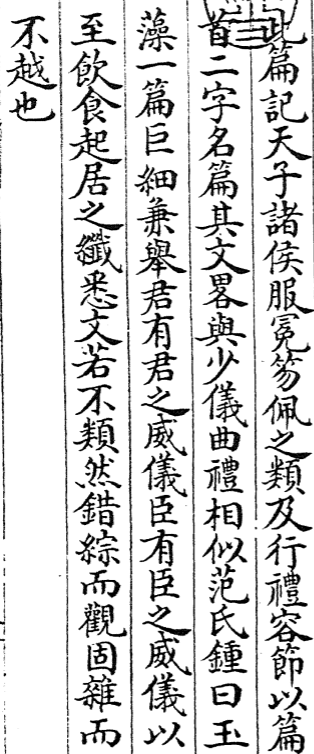 此篇記天子諸侯服冕笏佩之類及行禮容節以篇
首二字名篇其文畧與少儀曲禮相似范氏鍾曰玉
藻一篇巨細兼舉君有君之威儀臣有臣之威儀以
至飲食起居之纖悉文若不類然錯綜而觀固雜而
不越也